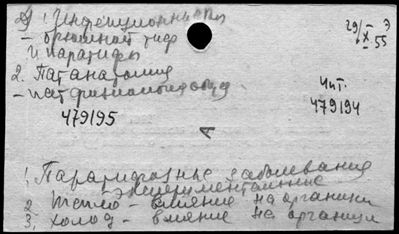 1. Инфекционные б-ни
- брюшной тиф
и паратифы
29/X 55
2. Пат. анатомия
- патфизиология
Чит.
479195
479194
А
1. Паратифозные заболевания
- экспериментальные
2. Тепло - влияние на организм
3. Холод - влияние на организм